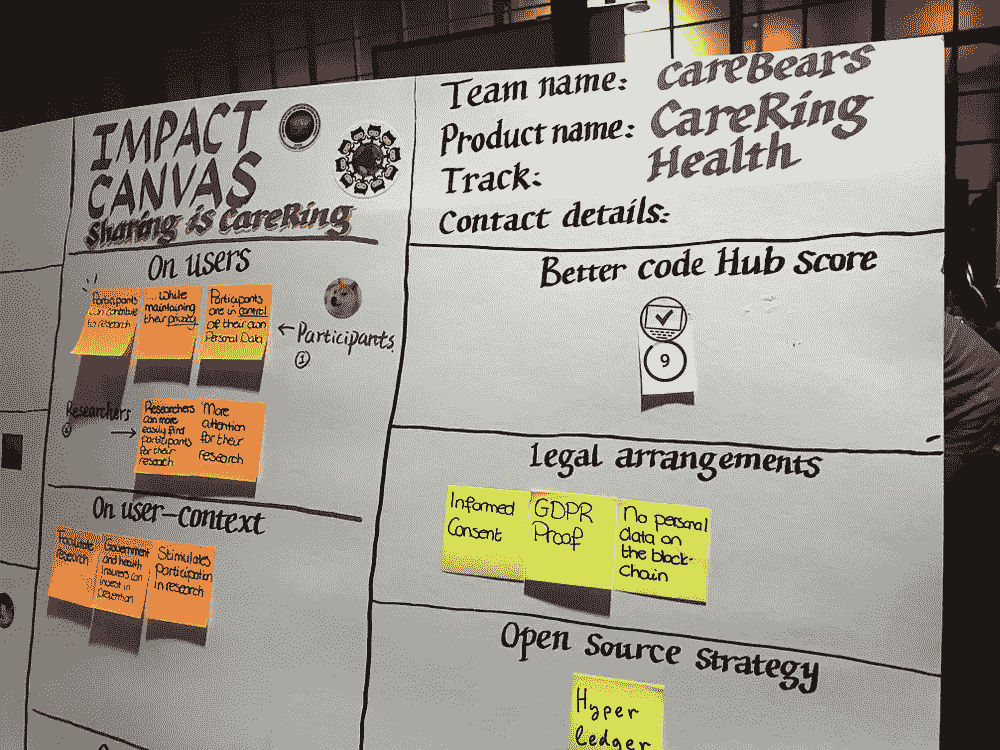 IMPACT
CANVAS
Sharing is CareRing
On users
Participants
can contribute
to research
...while
maintaining
their privacy
Participants
are in control
of their own
Personal Data
←Participants
1
Researchers
→
Researchers
can more
easily find
participants
for their
research
More
attention
for their
research
On user-context
Facilitate
research
Government
and health
insurers can
invest in
prevention
Stimulates
participation
in research
Team name: CareBears
Product name: CareRing
Track: Health
Contact details:
Better code Hub Score
9
Legal arrangements
Informed
Consent
GDPR
Proof
No personal
data on
the block-
chain
Open Source Strategy
Hyper
ledger